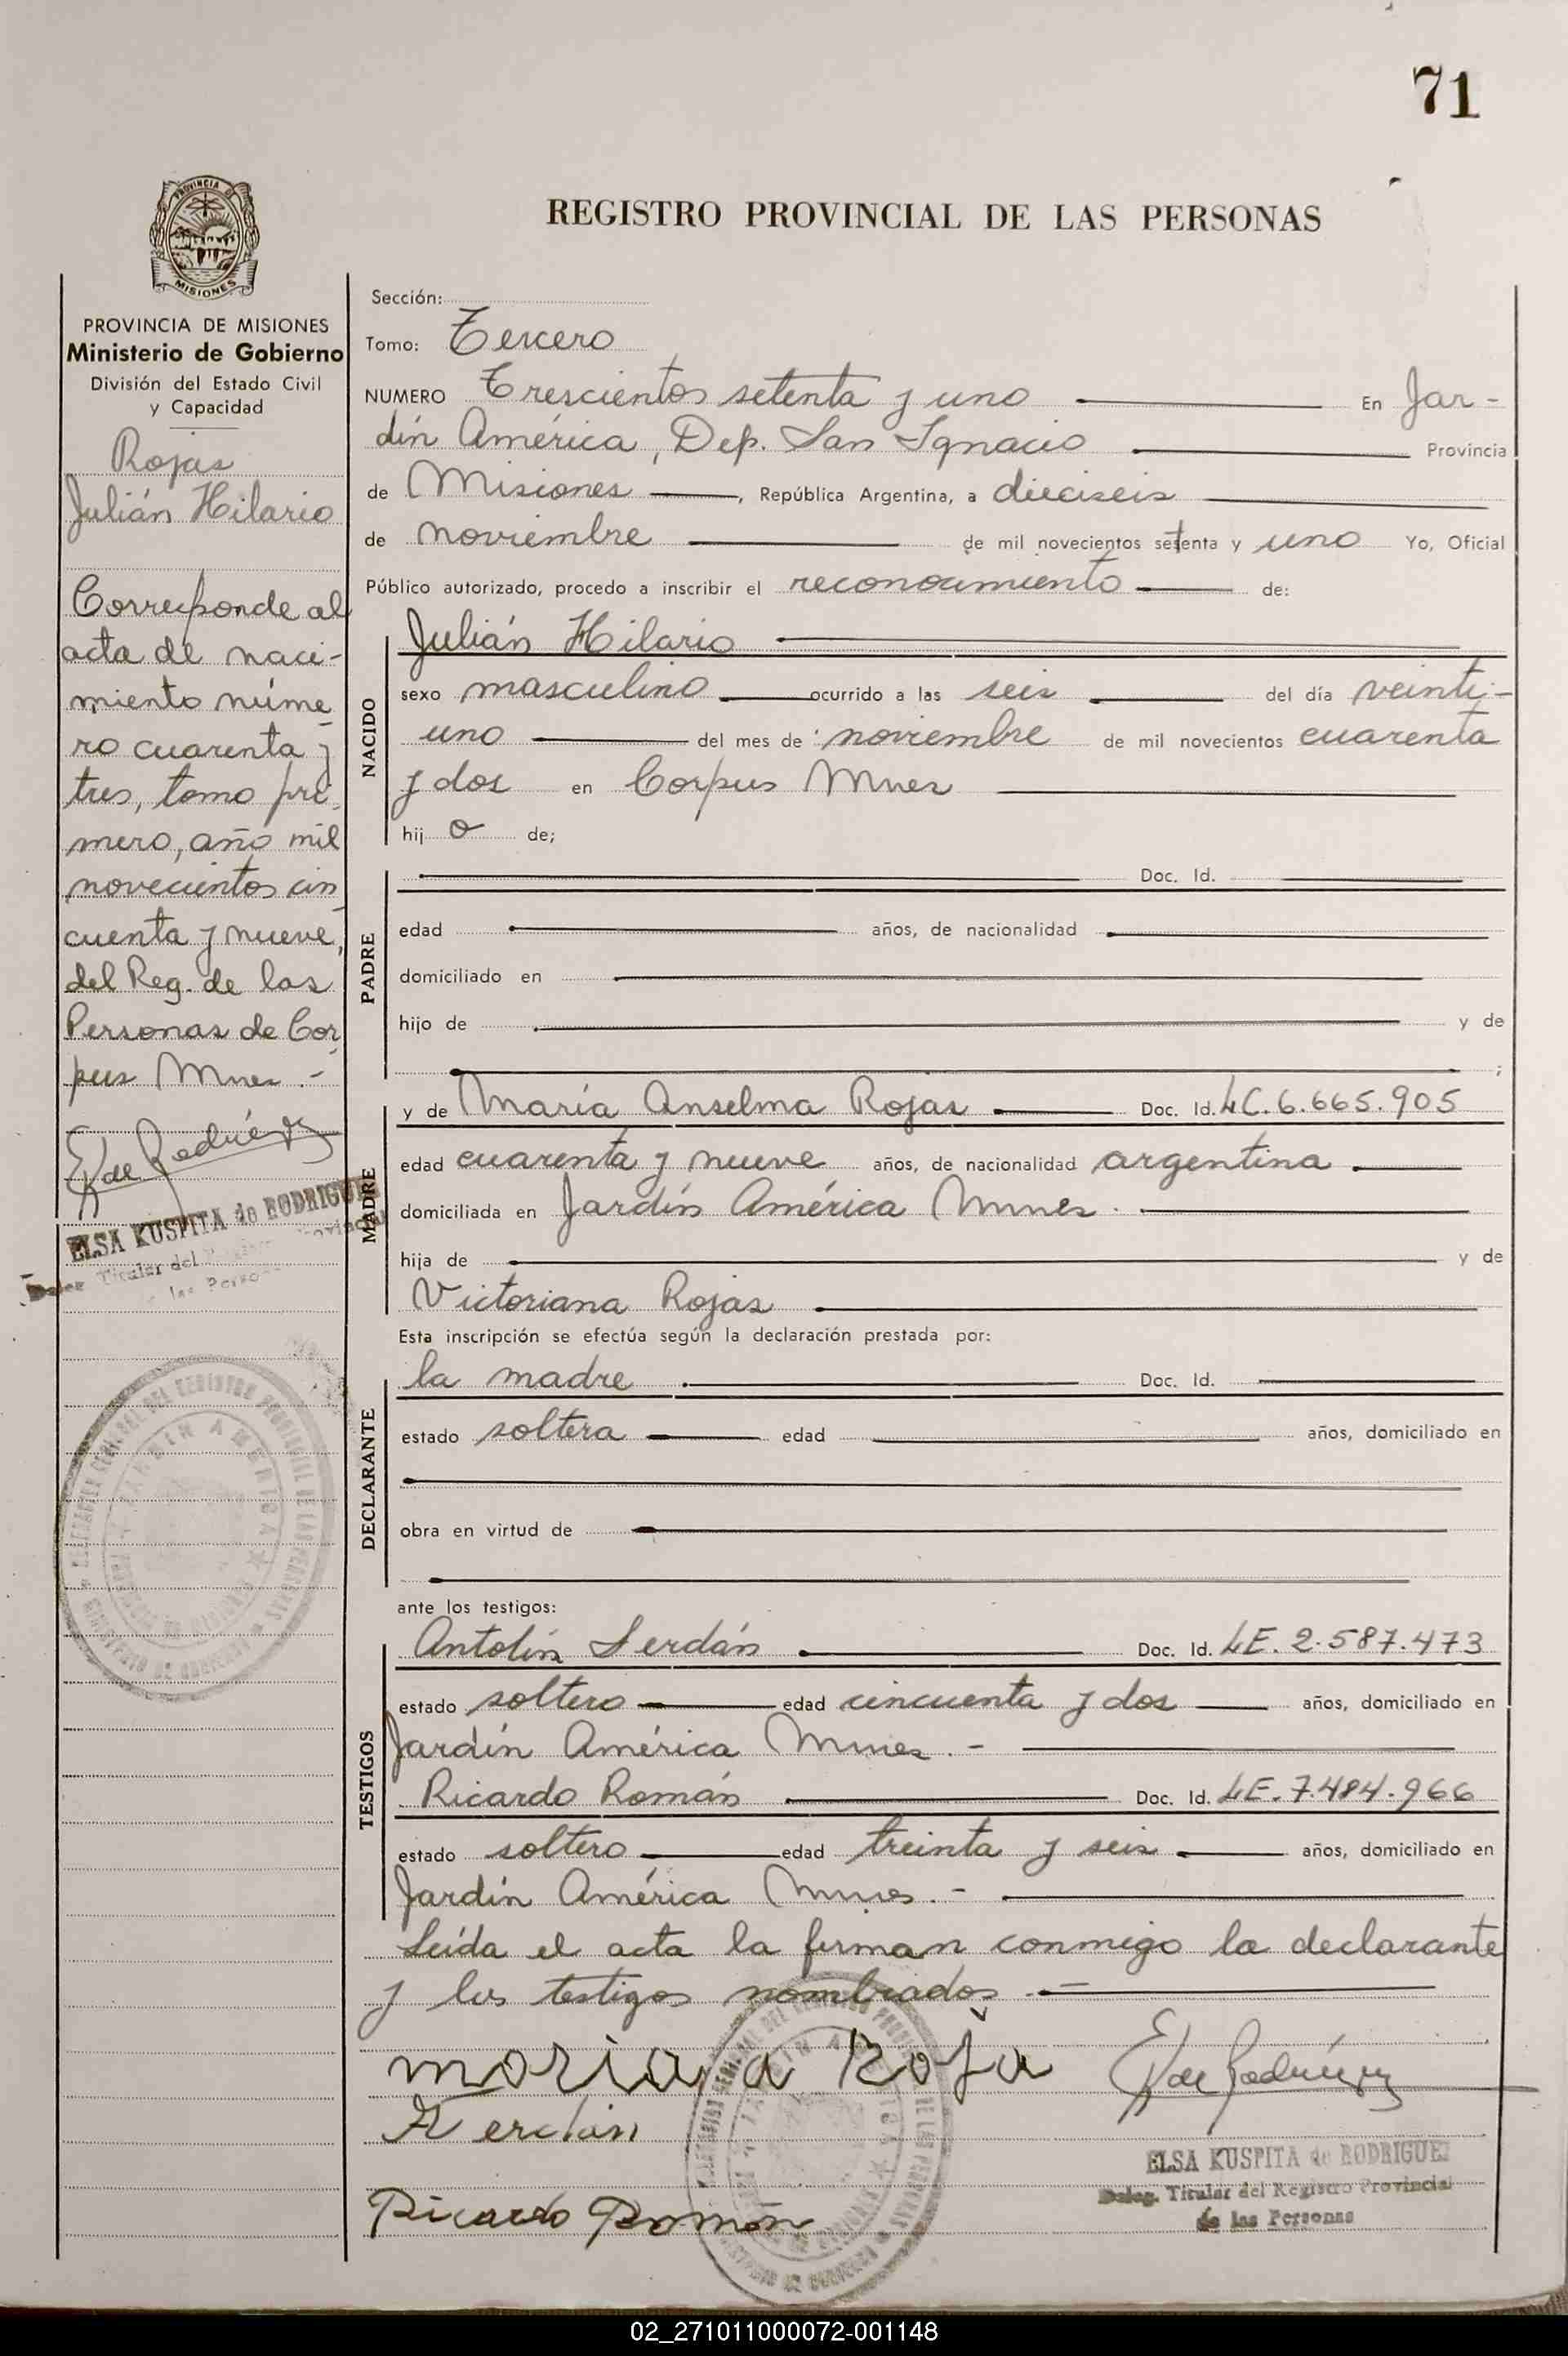 71
PROVINCIA DE
MISIONES
REGISTRO PROVINCIAL DE LAS PERSONAS
PROVINCIA DE MISIONES
Ministerio de Gobierno
División del Estado Civil
y Capacidad
Rojas
Julián Hilario
Corresponde al
acta de naci-
miento núme-
ro cuarenta y
tres, tomo pri-
mero, año mil
novecientos cin-
cuenta y nueve,
del Reg. de las
Personas de Cor-
pus Mnes.-
E K de Rodríguez
ELSA KUSPITA de RODRIGUEZ
Deleg. Titular del Registro Provincial
de las Personas
Sección:
Tomo: Tercero
NUMERO Trescientos setenta y uno En Jar-
dín América, Dep. San Ignacio Provincia
de Misiones, República Argentina, a dieciseis
de noviembre de mil novecientos setenta y uno Yo, Oficial
Público autorizado, procedo a inscribir el reconocimiento de:
NACIDO
Julián Hilario
sexo masculino ocurrido a las seis del día veinti-
uno del mes de noviembre de mil novecientos cuarenta
y dos en Corpus Mnes
hij o de;
PADRE
Doc. Id.
edad años, de nacionalidad
domiciliado en
hijo de y de
;
MADRE
y de María Anselma Rojas Doc. Id. LC. 6.665.905
edad cuarenta y nueve años, de nacionalidad argentina
domiciliada en Jardín América Mnes.
hija de y de
Victoriana Rojas
Esta inscripción se efectúa según la declaración prestada por:
DECLARANTE
la madre Doc. Id.
estado soltera edad años, domiciliado en
obra en virtud de
ante los testigos:
TESTIGOS
Antolín Serdán Doc. Id. LE. 2.587.473
estado soltero edad cincuenta y dos años, domiciliado en
Jardín América Mnes.-
Ricardo Román Doc. Id. LE. 7.484.966
estado soltero edad treinta y seis años, domiciliado en
Jardín América Mnes.-
Leída el acta la firman conmigo la declarante
y los testigos nombrados.-
maria a Roja
E K de Rodríguez
Ricardo Román
ELSA KUSPITA de RODRIGUEZ
Deleg. Titular del Registro Provincial
de las Personas
02_271011000072-001148